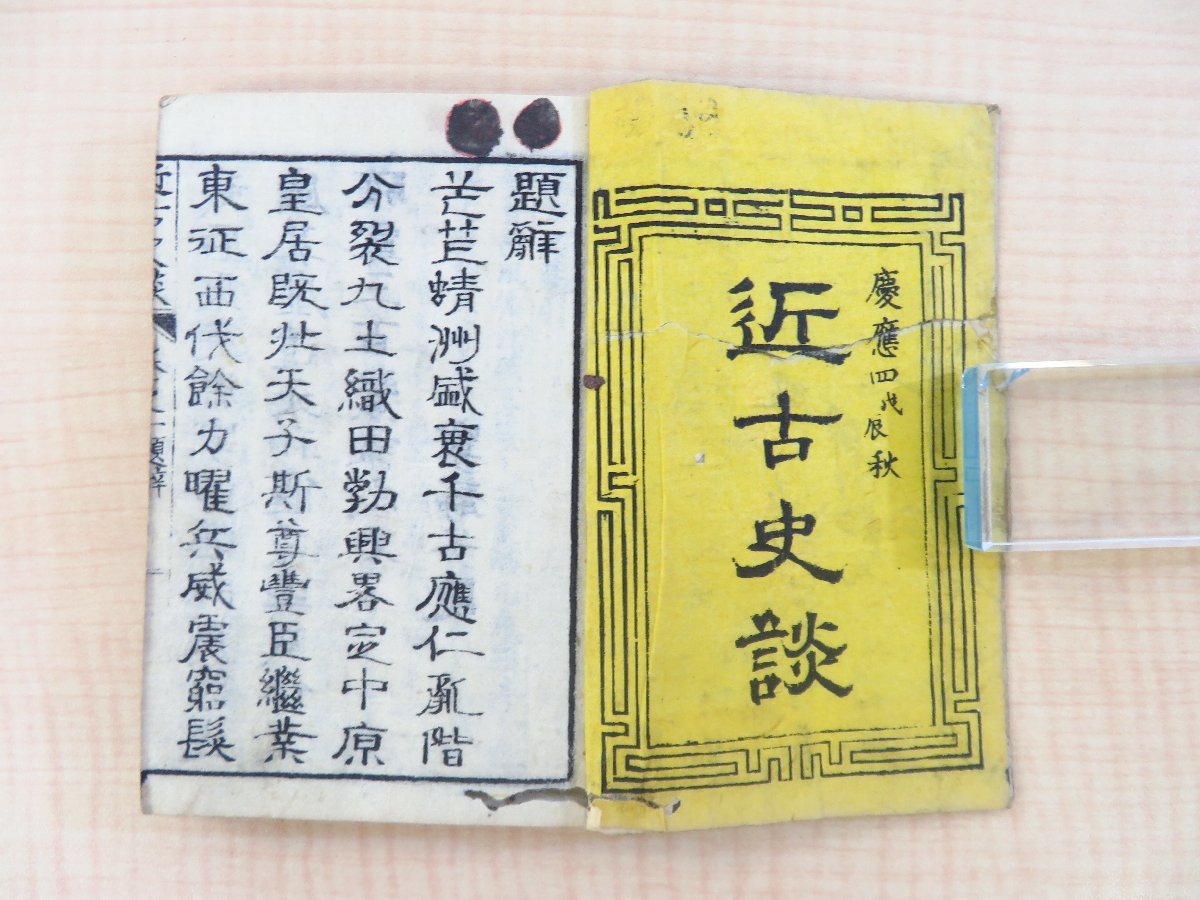 慶應四戊辰秋
近古史談
題辭
芒芒蜻洲盛衰千古應仁亂階
分裂九土織田勃興畧定中原
皇居既壯天子斯尊豐臣繼業
東征西伐餘力曜兵威震窮髮